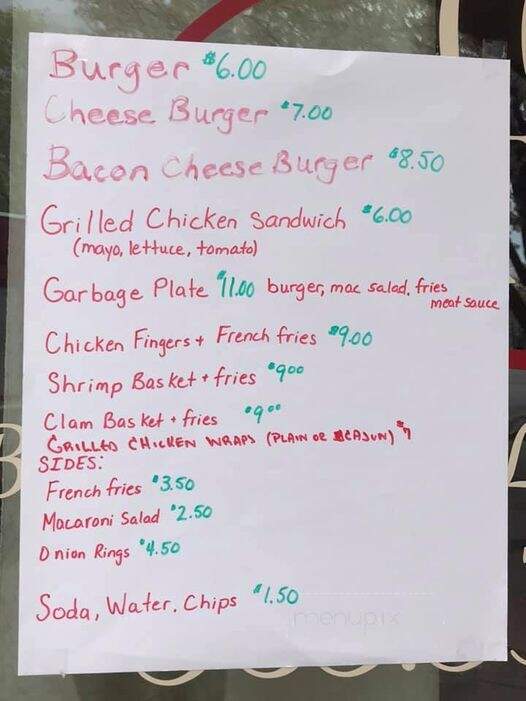 Burger $6.00
Cheese Burger $7.00
Bacon Cheese Burger $8.50
Grilled Chicken Sandwich $6.00
(mayo, lettuce, tomato)
Garbage Plate $11.00 burger, mac salad, fries
meat sauce
Chicken Fingers + French fries $9.00
Shrimp Basket + fries $9.00
Clam Basket + fries $9.00
GRILLED CHICKEN WRAPS (PLAIN OR CAJUN) $7
SIDES:
French fries $3.50
Macaroni Salad $2.50
Onion Rings $4.50
Soda, Water, Chips $1.50
menupix